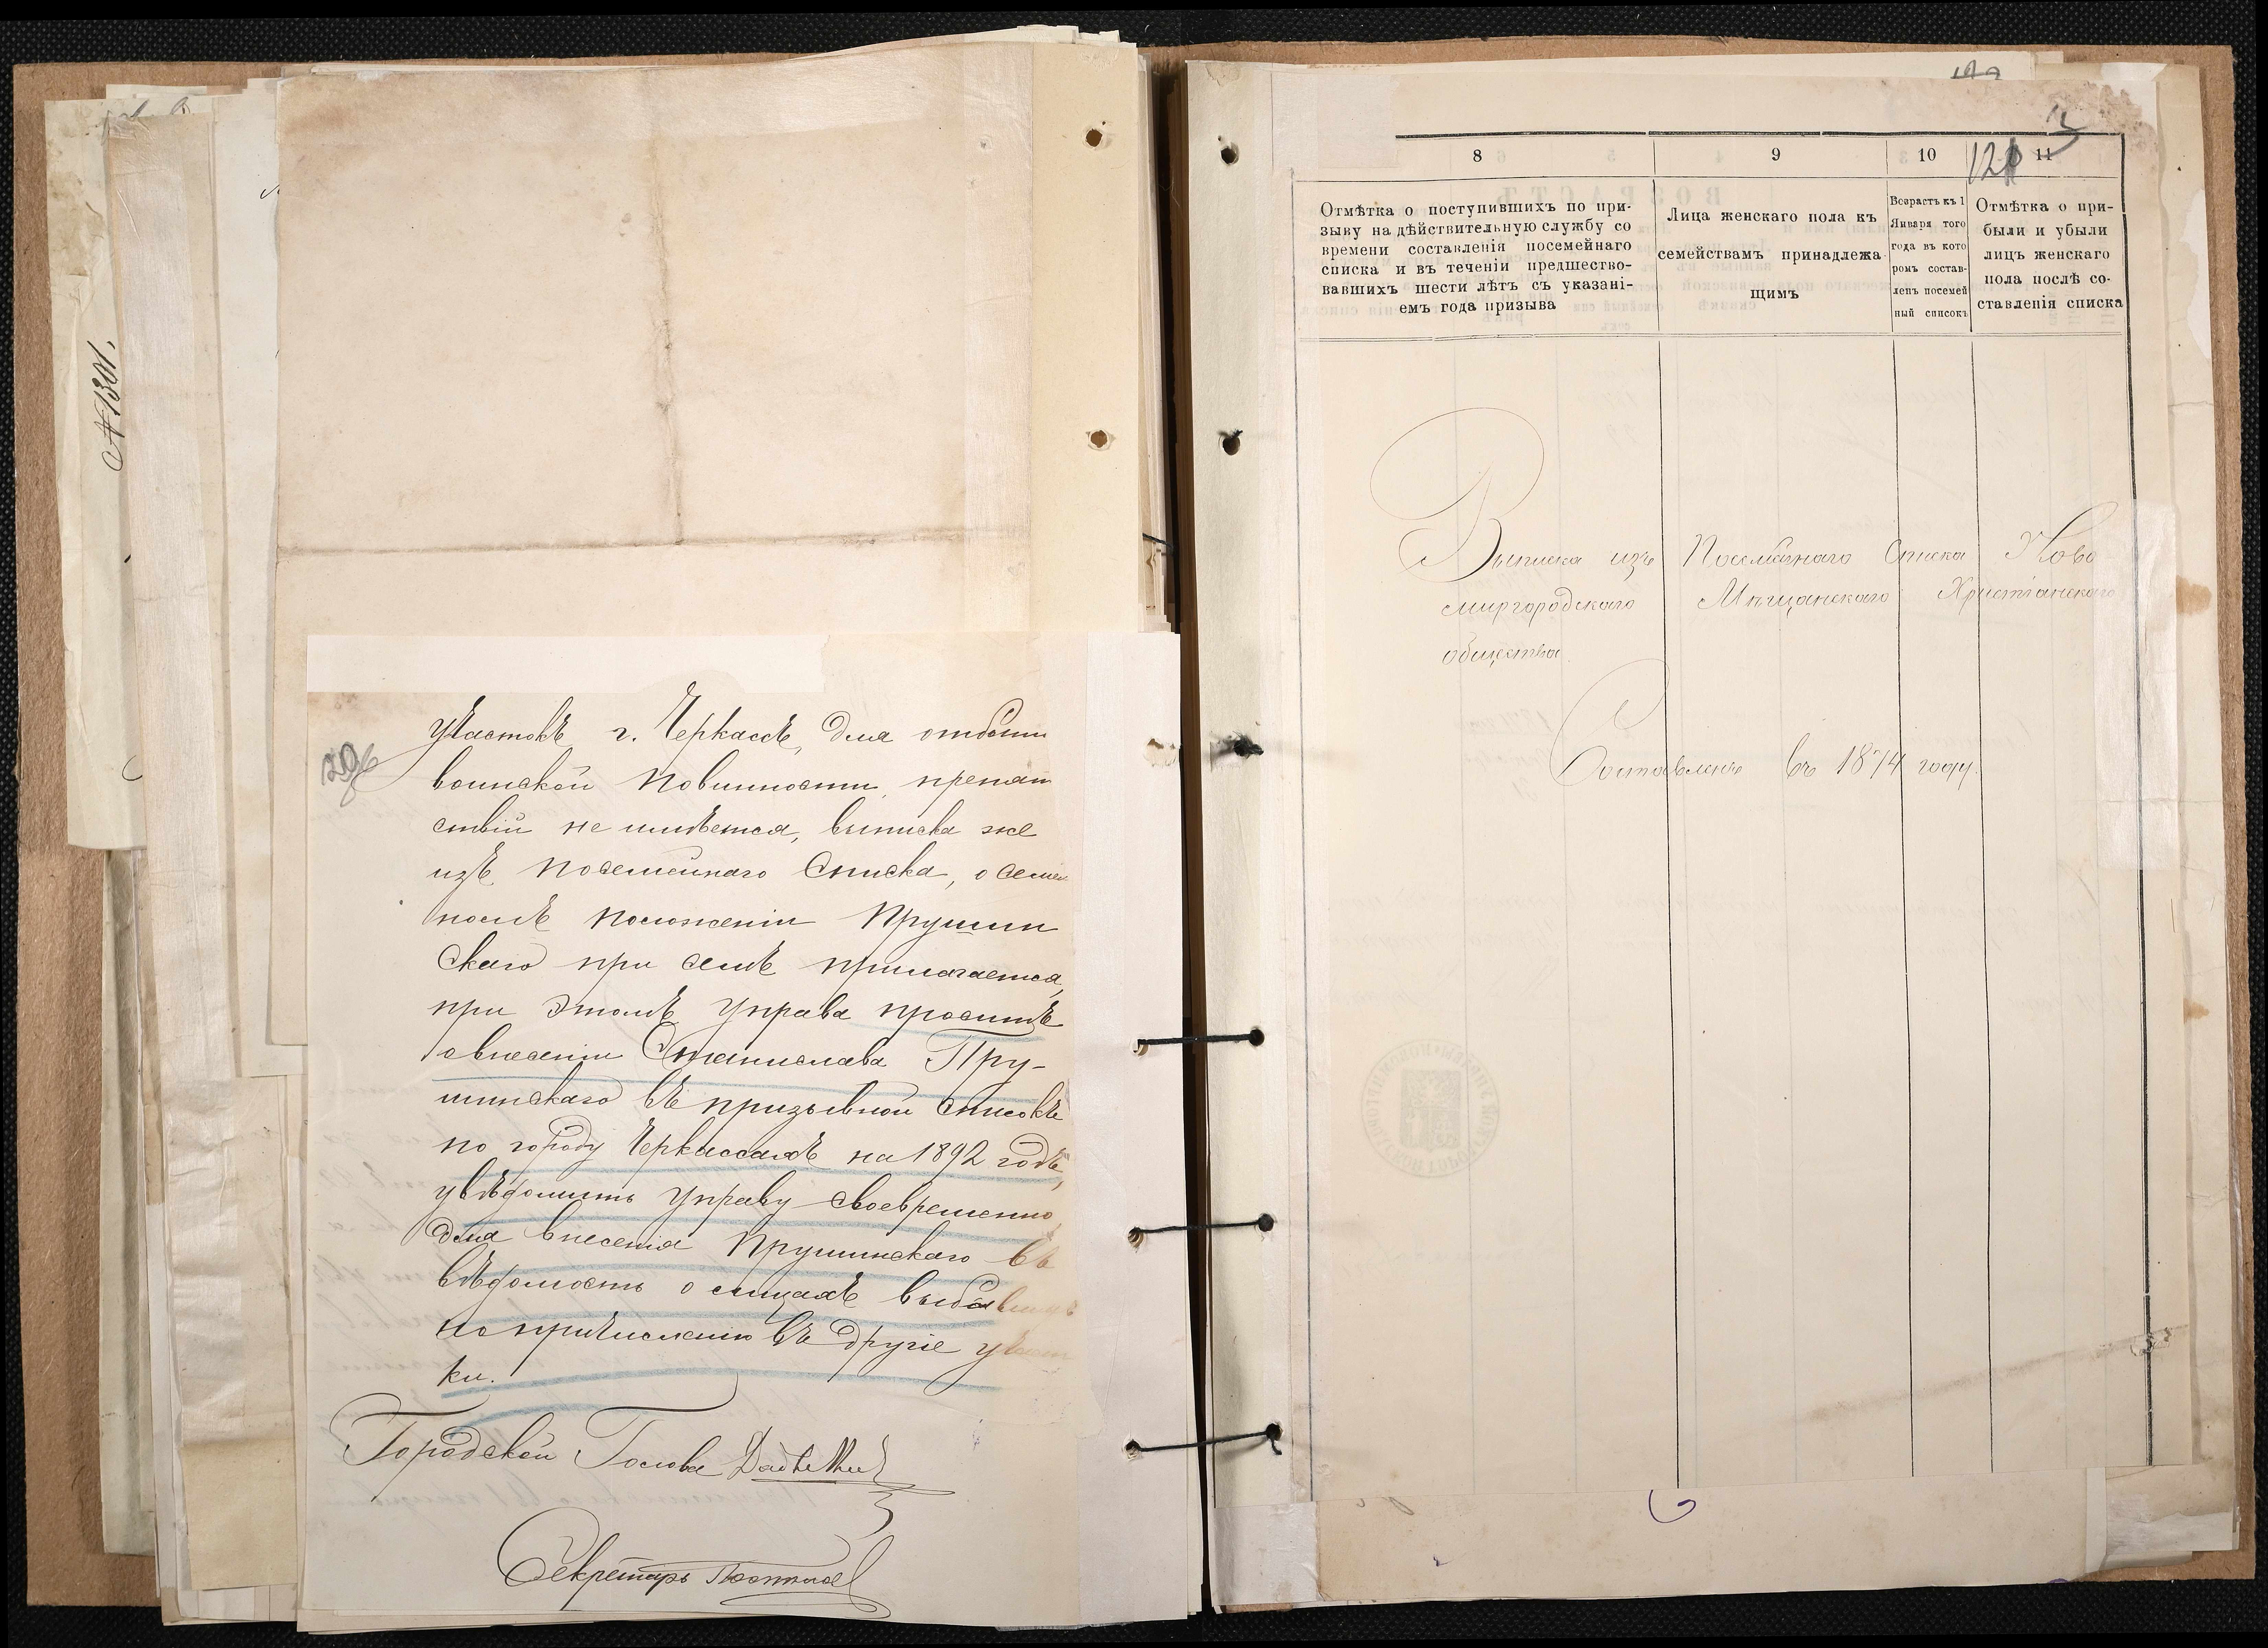 № 1301.
участкѣ г. Черкассъ, для отбыти
воинской повинности, препят
ствій не имѣется, выписка же
изъ посемейнаго списка, о семей
номъ положеніи Прушин
скаго при семъ прилагается,
при этомъ Управа проситъ
о внесеніи Станислава Пру-
шинскаго въ призывной списокъ
по городу Черкассамъ на 1892 годъ,
увѣдомить Управу своевременно
для внесенія Прушинскаго въ
вѣдомость о лицахъ выбывшихъ
по причисленію въ другіе участ
ки.
Городской Голова
Секретарь
8 9 10 11
Отмѣтка о поступившихъ по при-
зыву на дѣйствительную службу со
времени составленія посемейнаго
списка и въ теченіи предшество-
вавшихъ шести лѣтъ съ указані-
емъ года призыва
Лица женскаго пола къ
семействамъ принадлежа
щимъ
Возрастъ къ 1
Января того
года въ кото
ромъ состав-
ленъ посемей
ный списокъ
Отмѣтка о при-
были и убыли
лицъ женскаго
пола послѣ со-
ставленія списка
Выписка изъ Посемейнаго Списка Ново
миргородскаго Мѣщанскаго Христіанскаго
общества.
Составленъ въ 1874 году.